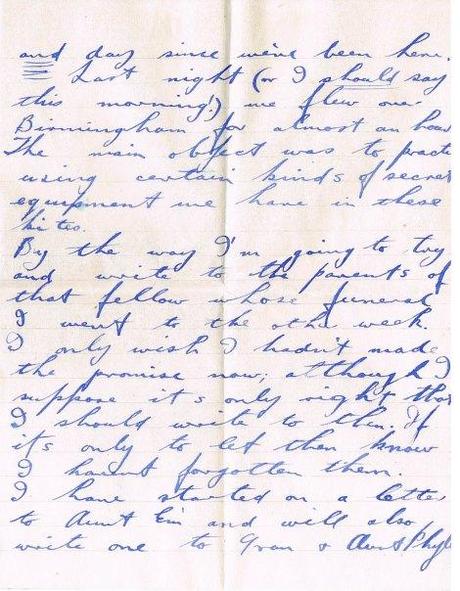 and day since we've been here.
Last night (or I should say
this morning!) we flew over
Birmingham for almost an hour
The main object was to practi
using certain kinds of secret
equipment we have in these
kites.
By the way I'm going to try
and write to the parents of
that fellow whose funeral
I went to the other week.
I only wish I hadn't made
the promise now; although I
suppose it's only right that
I should write to them. If
it's only to let them know
I havent forgotten them.
I have started on a letter
to Aunt Ein and will also
write one to Gran & Aunt Phyl